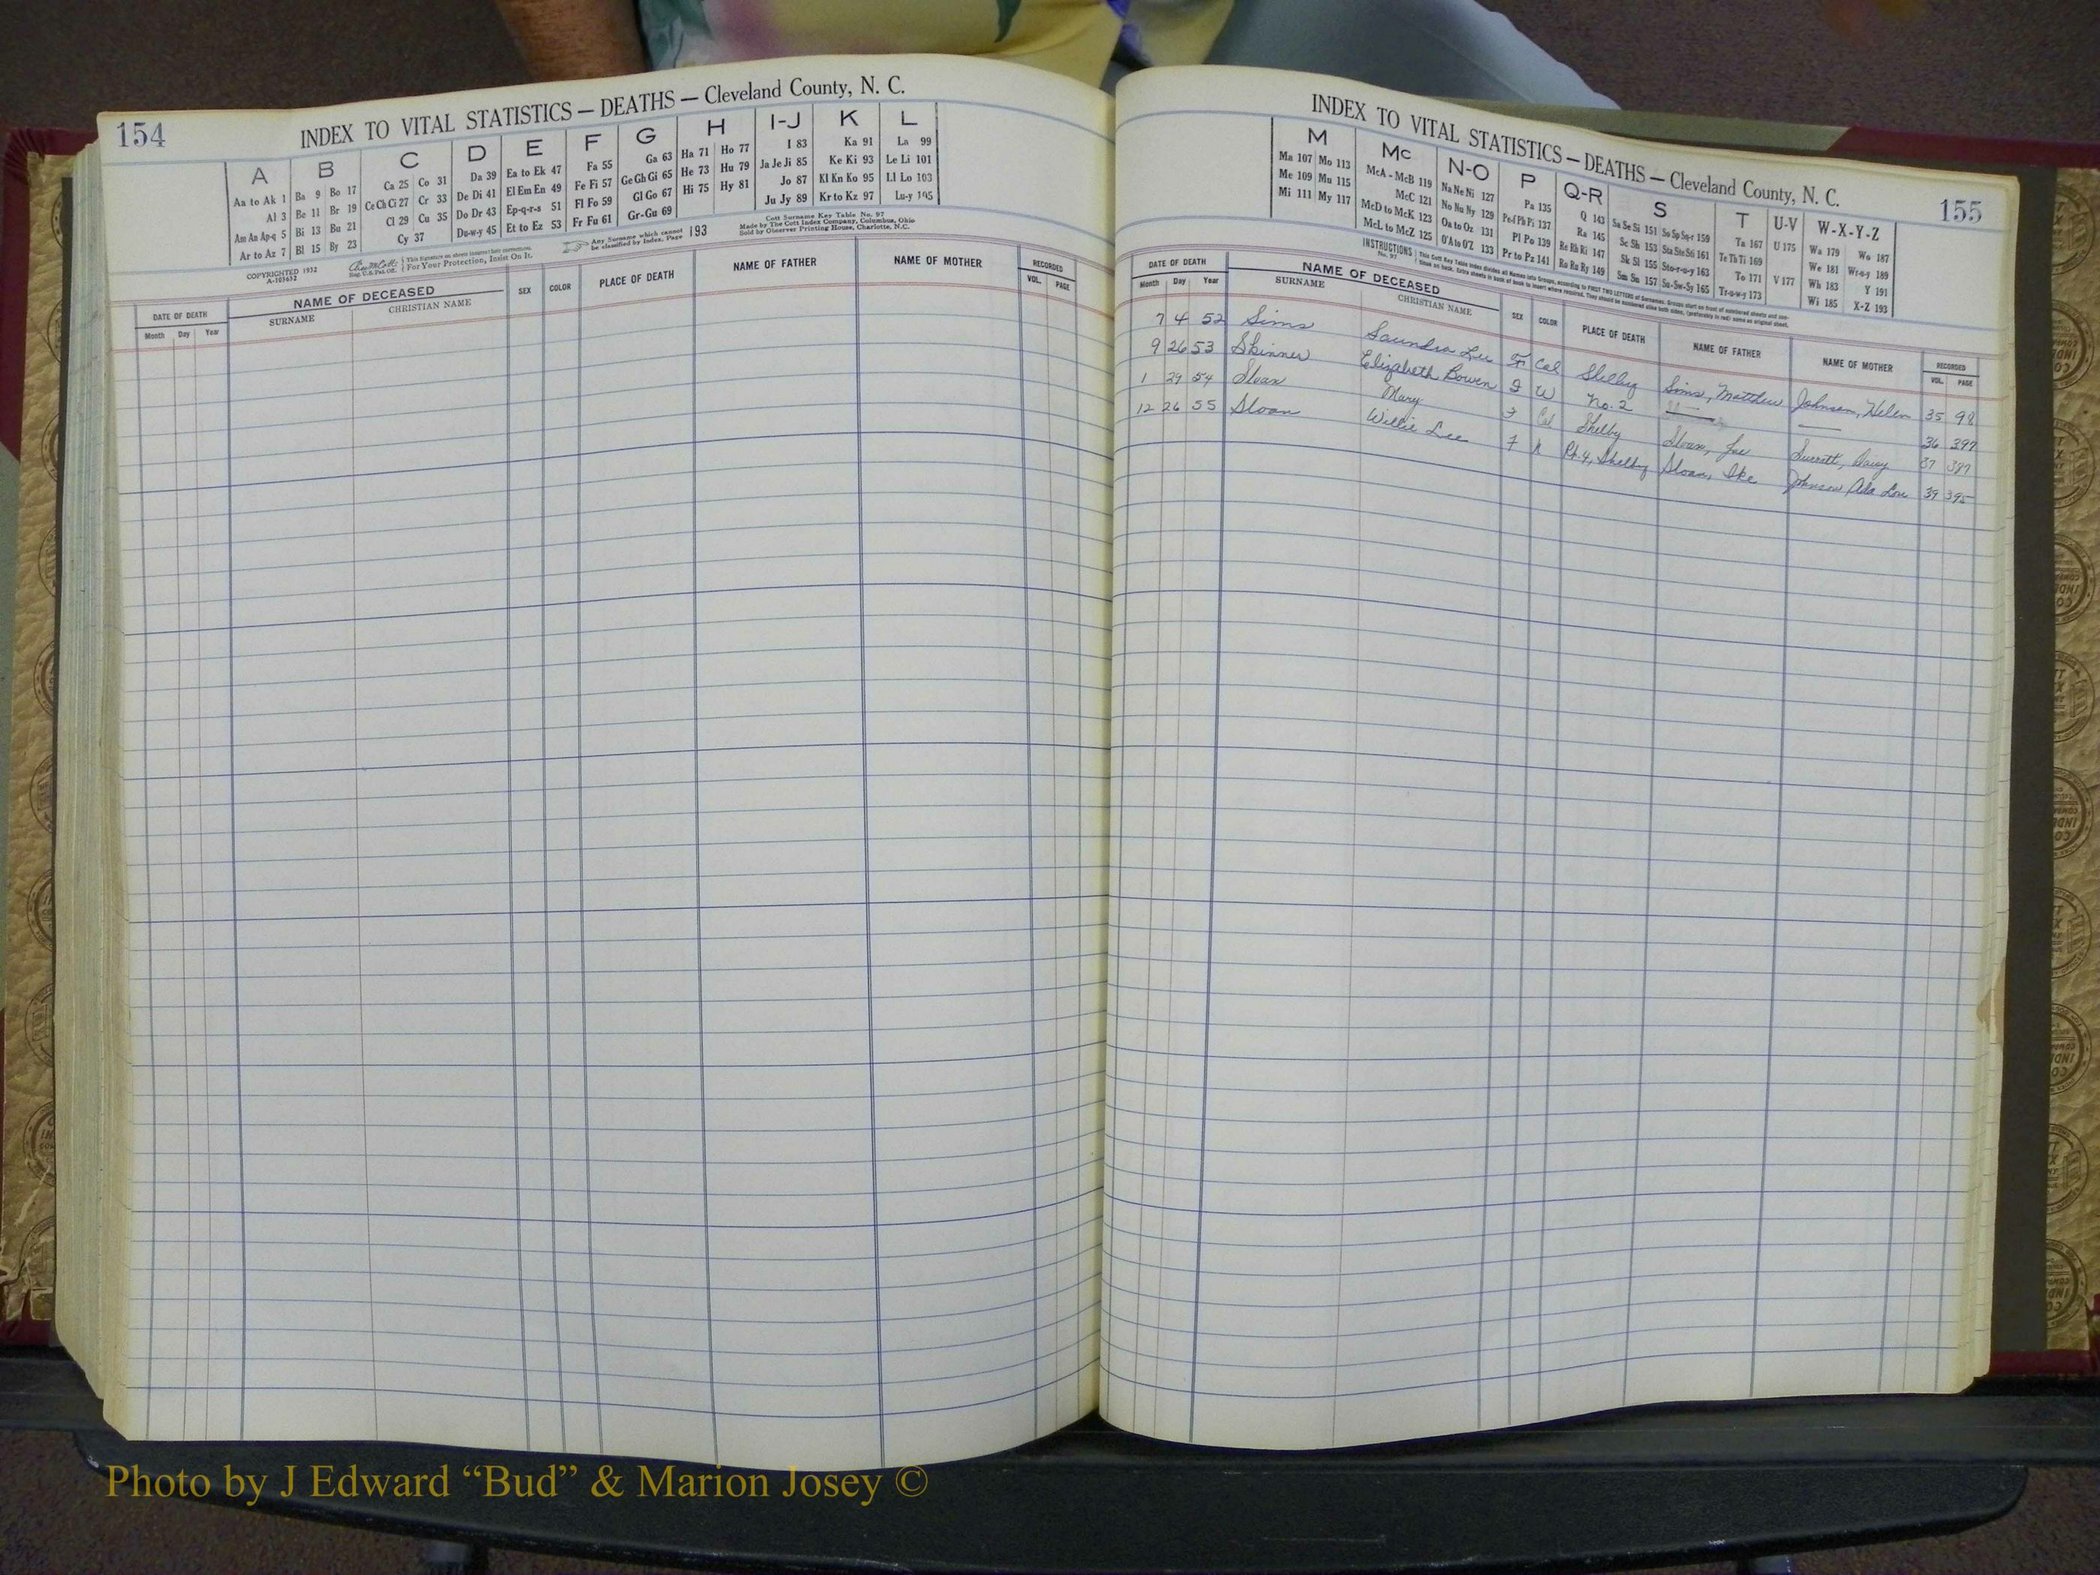 154
INDEX TO VITAL STATISTICS — DEATHS — Cleveland County, N. C.
A B C D E F G H I-J K L
Aa to Ak 1 Ba 9 Bo 17 Ca 25 Co 31 Da 39 Ea to Ek 47 Fa 55 Ga 63 Ha 71 Ho 77 I 83 Ka 91 La 99
Al 3 Be 11 Br 19 Ce Ch Ci 27 Cr 33 De Di 41 El Em En 49 Fe Fi 57 Ge Gh Gi 65 He 73 Hu 79 Ja Je Ji 85 Ke Ki 93 Le Li 101
Am An Ap-q 5 Bi 13 Bu 21 Cl 29 Cu 35 Do Dr 43 Ep-q-r-s 51 Fl Fo 59 Gl Go 67 Hi 75 Hy 81 Jo 87 Kl Kn Ko 95 Ll Lo 103
Ar to Az 7 Bl 15 By 23 Cy 37 Du-w-y 45 Et to Ez 53 Fr Fu 61 Gr-Gu 69 Ju Jy 89 Kr to Kz 97 Lu-y 105
COPYRIGHTED 1932
A-103632
Reg. U.S. Pat. Off.
For Your Protection, Insist On It.
Any Surname which cannot be classified by Index, Page 193
Cott Surname Key Table No. 97
Made by The Cott Index Company, Columbus, Ohio
Sold by Observer Printing House, Charlotte, N.C.
DATE OF DEATH NAME OF DECEASED SEX COLOR PLACE OF DEATH NAME OF FATHER NAME OF MOTHER RECORDED
Month Day Year SURNAME CHRISTIAN NAME VOL. PAGE
INDEX TO VITAL STATISTICS — DEATHS — Cleveland County, N. C.
155
M Mc N-O P Q-R S T U-V W-X-Y-Z
Ma 107 Mo 113 McA - McB 119 Na Ne Ni 127 Pa 135 Q 143 Sa Se Si 151 So Sp Sq-r 159 Ta 167 U 175 Wa 179 Wo 187
Me 109 Mu 115 McC 121 No Nu Ny 129 Pe-f Ph Pi 137 Ra 145 Sc Sh 153 Sta Ste Sti 161 Te Th Ti 169 We 181 Wr-u-y 189
Mi 111 My 117 McD to McK 123 Oa to Oz 131 Pl Po 139 Re Rh Ri 147 Sk Sl 155 Sto-r-u-y 163 To 171 V 177 Wh 183 Y 191
McL to McZ 125 O'A to O'Z 133 Pr to Pz 141 Ro Ru Ry 149 Sm Sn 157 Su-Sw-Sy 165 Tr-u-w-y 173 Wi 185 X-Z 193
INSTRUCTIONS
No. 97
DATE OF DEATH NAME OF DECEASED SEX COLOR PLACE OF DEATH NAME OF FATHER NAME OF MOTHER RECORDED
Month Day Year SURNAME CHRISTIAN NAME VOL. PAGE
7 4 52 Sims Saundra Lee F Col Shelby Sims, Matthew Johnson, Helen 35 98
9 26 53 Skinner Elizabeth Bowen F W No. 2 36 397
1 29 54 Sloan Mary F Col Shelby Sloan, Joe Surratt, Daisy 37 387
12 26 55 Sloan Willie Lee F Rt. 4, Shelby Sloan, Ike Johnson Ada Lou 39 395
Photo by J Edward “Bud” & Marion Josey ©